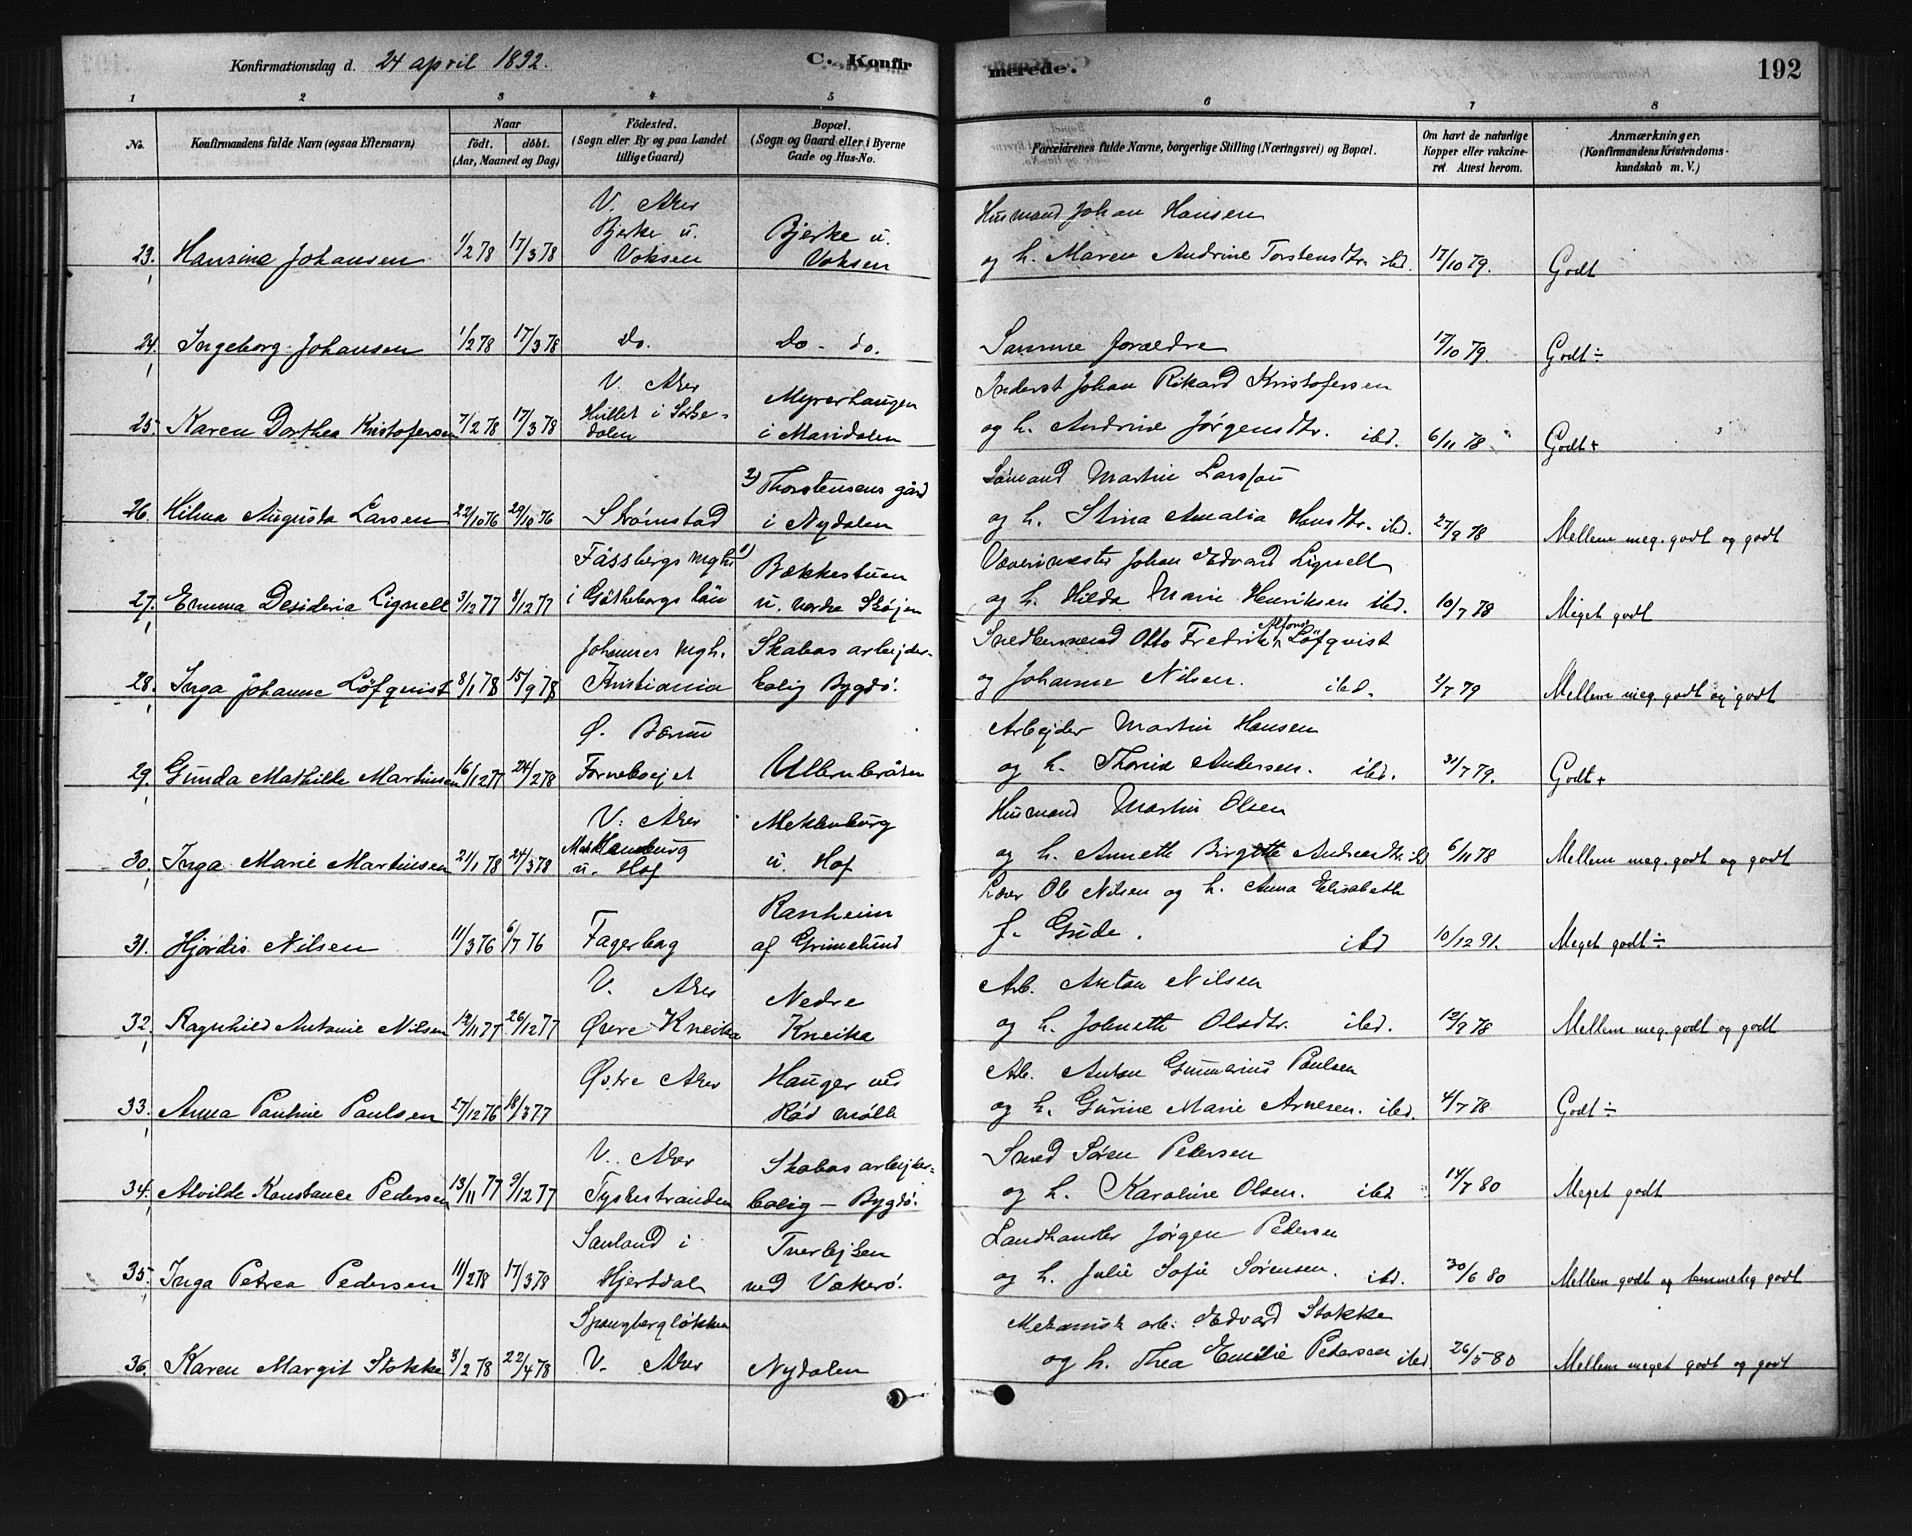 Konfirmationsdag d. 24 april 1892.
C. Konfirmerede.
192
1 2 3 4 5 6 7 8
No.
Konfirmandens fulde Navn (ogsaa Efternavn)
Naar
født. døbt.
(Aar, Maaned og Dag)
Fødested.
(Sogn eller By og paa Landet
tillige Gaard)
Bopæl.
(Sogn og Gaard eller i Byerne
Gade og Hus-No.
Forældrenes fulde Navne, borgerlige Stilling (Næringsvei) og Bopæl.
Om havt de naturlige
Kopper eller vakcine-
ret Attest herom.
Anmærkninger.
(Konfirmandens Kristendoms-
kundskab m. V.)
V. Aker Husmand Johan Hansen
Bjerke u. Bjerke u.
23. Hansine Johansen 1/2 78 17/3 78 Voksen Voksen og h. Maren Andrine Torstensdtr. ibd. 17/10 79. Godt
24. Ingeborg Johansen 1/2 78 17/3 78 Do. Do. do. Samme forældre 17/10 79. Godt ÷
V. Aker Myrerhaugen Inderst Johan Rikard Kristofersen
Hullet i Sørke-
25. Karen Dorthea Kristofersen 7/2 78 17/3 78 dalen i Maridalen og h. Andrine Jørgensdtr. ibd. 6/11 78 Godt +
2) Thorstensens gård Sømand Martin Larsson
26. Hilma Augusta Larsen 22/10 76 29/10 76 Strømstad i Nydalen og h. Stina Amalia Hansdtr. ibd. 27/9 78 Mellem meg. godt og godt
Fässbergs mgh. 1) Bækkestuen Vævermester Johan Edvard Lignell
27. Emma Desideria Lignell 3/12 77 8/12 77 i Götheborgs län u. nordre Skøjen og h. Hilda Marie Henriksen ibd. 10/7 78 Meget godt
Johannes mgh. Skabos arbejder- Snedkersvend Otto Fredrik Alfons Löfqvist
28. Inga Johanne Löfqvist 8/1 78 15/9 78 Kristiania bolig Bygdø. og Johanne Nilsen. ibd. 2/7 79 Mellem meg. godt og godt
Ø. Bærum Arbejder Martin Hansen
29. Gunda Mathilde Martinsen 16/12 77 24/2 78 Forneboejet Ullernbråten og h. Thorine Andersen. ibd. 31/7 79. Godt +
V. Aker Meklenburg Husmand Martin Olsen
Meklenburg
30. Inga Marie Martinsen 21/1 78 24/3 78 u. Hof u. Hof og h. Annette Birgitte Andreasdtr. ibd 6/11 78 Mellem meg. godt og godt
Ranheim Lærer Ole Nilsen og h. Anna Elisabeth
31. Hjørdis Nilsen 11/3 76 6/7 76 Fagerborg af Grimelund f. Gude. ibd 10/12 91. Meget godt ÷
V. Aker Nedre Arb. Anton Nilsen
32. Ragnhild Antonie Nilsen 12/11 77 26/12 77 Øvre Kneika Kneika og h. Johnette Olsdtr. ibd. 12/9 78 Mellem meg. godt og godt
Østre Aker Hauger ved Arb. Anton Gunnerius Paulsen
33. Anna Pauline Paulsen 27/12 76 18/3 77 Rød mølle og h. Gurine Marie Arnesen. ibd. 4/7 78 Godt ÷
V. Aker Skabos arbejder- Smed Søren Pedersen
34. Alvilde Konstance Pedersen 13/11 77 9/12 77 Tyskestranden bolig – Bygdø. og h. Karoline Olsen. ibd 14/7 80 Meget godt
Sauland i Tverlejken Landhandler Jørgen Pedersen
35. Inga Petrea Pedersen 11/2 78 17/3 78 Hjertdal ved Vækerø. og h. Julie Sofie Sørensen. ibd. 30/6 80 Mellem godt og temmelig godt
Spangbergløkken Mekanisk arb. Edvard Stokke
36. Karen Margit Stokke 3/2 78 22/4 78 V. Aker Nydalen og h. Thea Emilie Petersen ibd. 26/5 80 Mellem meget godt og godt